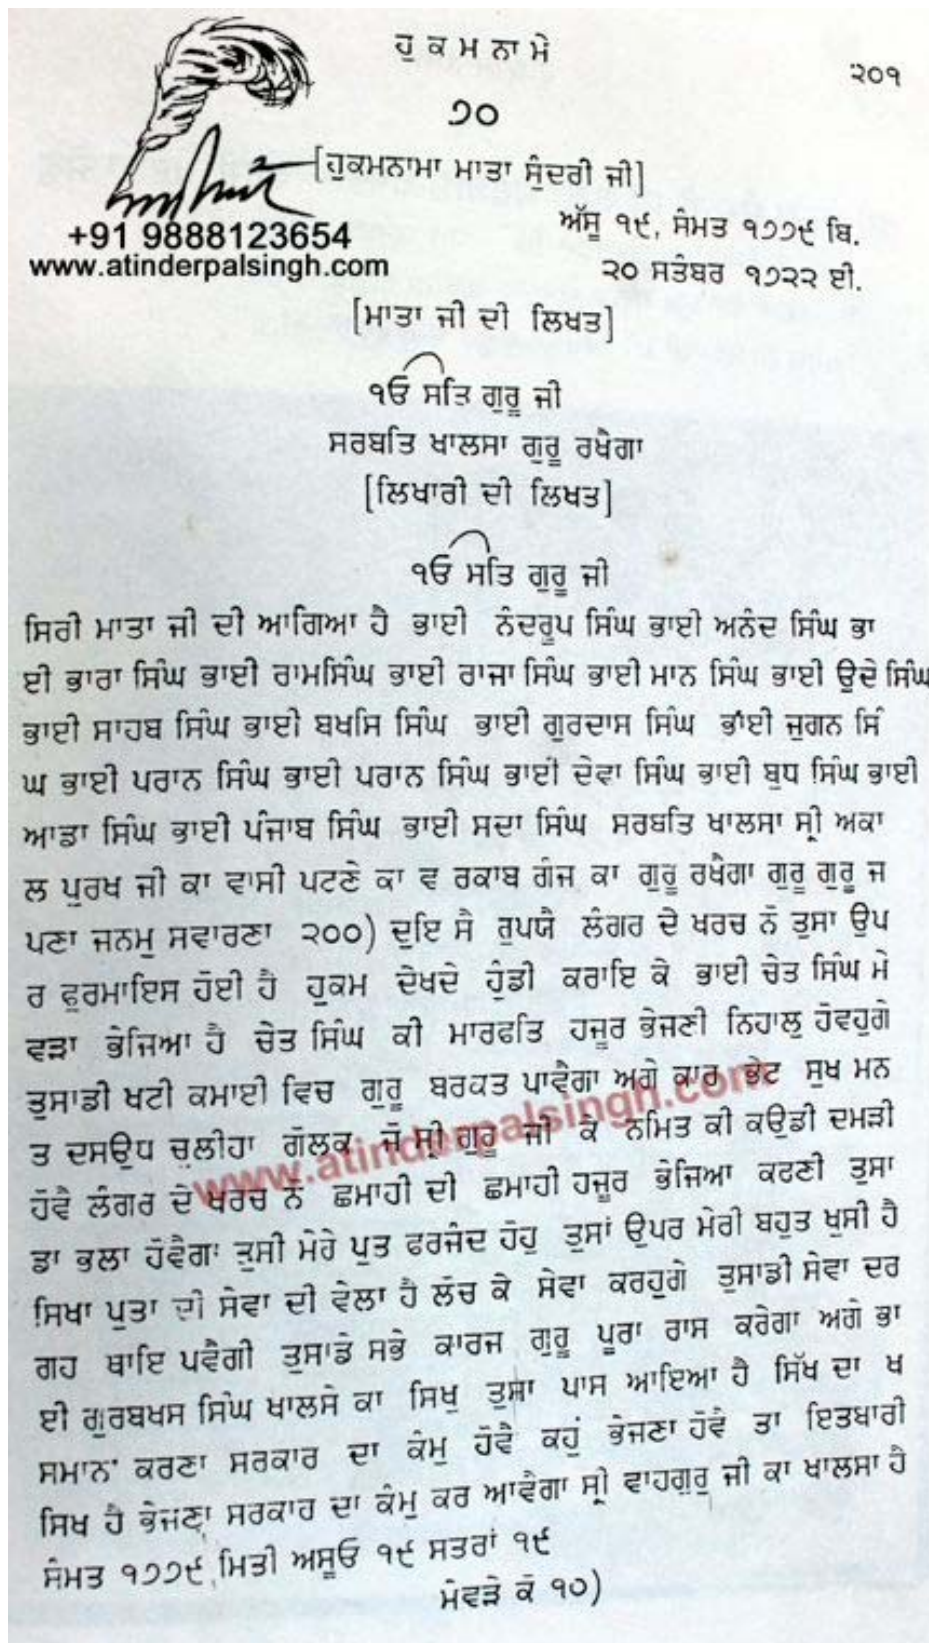 ਹੁਕਮਨਾਮੇ
੨੦੧
੭੦
[ਹੁਕਮਨਾਮਾ ਮਾਤਾ ਸੁੰਦਰੀ ਜੀ]
+91 9888123654
www.atinderpalsingh.com
ਅੱਸੂ ੧੯, ਸੰਮਤ ੧੭੭੯ ਬਿ.
੨੦ ਸਤੰਬਰ ੧੭੨੨ ਈ.
[ਮਾਤਾ ਜੀ ਦੀ ਲਿਖਤ]
ੴ ਸਤਿ ਗੁਰੂ ਜੀ
ਸਰਬਤਿ ਖਾਲਸਾ ਗੁਰੂ ਰਖੈਗਾ
[ਲਿਖਾਰੀ ਦੀ ਲਿਖਤ]
ੴ ਸਤਿ ਗੁਰੂ ਜੀ
ਸਿਰੀ ਮਾਤਾ ਜੀ ਦੀ ਆਗਿਆ ਹੈ ਭਾਈ ਨੰਦਰੂਪ ਸਿੰਘ ਭਾਈ ਅਨੰਦ ਸਿੰਘ ਭਾ
ਈ ਭਾਰਾ ਸਿੰਘ ਭਾਈ ਰਾਮਸਿੰਘ ਭਾਈ ਰਾਜਾ ਸਿੰਘ ਭਾਈ ਮਾਨ ਸਿੰਘ ਭਾਈ ਉਦੇ ਸਿੰਘ
ਭਾਈ ਸਾਹਬ ਸਿੰਘ ਭਾਈ ਬਖਸਿ ਸਿੰਘ ਭਾਈ ਗੁਰਦਾਸ ਸਿੰਘ ਭਾਈ ਜੁਗਨ ਸਿੰ
ਘ ਭਾਈ ਪਰਾਨ ਸਿੰਘ ਭਾਈ ਪਰਾਨ ਸਿੰਘ ਭਾਈ ਦੇਵਾ ਸਿੰਘ ਭਾਈ ਬੁਧ ਸਿੰਘ ਭਾਈ
ਆਡਾ ਸਿੰਘ ਭਾਈ ਪੰਜਾਬ ਸਿੰਘ ਭਾਈ ਸਦਾ ਸਿੰਘ ਸਰਬਤਿ ਖਾਲਸਾ ਸ੍ਰੀ ਅਕਾ
ਲ ਪੁਰਖ ਜੀ ਕਾ ਵਾਸੀ ਪਟਣੇ ਕਾ ਵ ਰਕਾਬ ਗੰਜ ਕਾ ਗੁਰੂ ਰਖੈਗਾ ਗੁਰੂ ਗੁਰੂ ਜ
ਪਣਾ ਜਨਮੁ ਸਵਾਰਣਾ ੨੦੦) ਦੁਇ ਸੈ ਰੁਪਯੈ ਲੰਗਰ ਦੇ ਖਰਚ ਨੋ ਤੁਸਾ ਉਪ
ਰ ਫੁਰਮਾਇਸ ਹੋਈ ਹੈ ਹੁਕਮ ਦੇਖਦੇ ਹੁੰਡੀ ਕਰਾਇ ਕੇ ਭਾਈ ਚੇਤ ਸਿੰਘ ਮੇ
ਵੜਾ ਭੇਜਿਆ ਹੈ ਚੇਤ ਸਿੰਘ ਕੀ ਮਾਰਫਤਿ ਹਜੂਰ ਭੇਜਣੀ ਨਿਹਾਲੁ ਹੋਵਹੁਗੇ
ਤੁਸਾਡੀ ਖਟੀ ਕਮਾਈ ਵਿਚ ਗੁਰੂ ਬਰਕਤ ਪਾਵੈਗਾ ਅਗੇ ਕਾਰ ਭੇਟ ਸੁਖ ਮਨ
ਤ ਦਸਉਧ ਚੁਲੀਹਾ ਗੋਲਕ ਜੋ ਸ੍ਰੀ ਗੁਰੂ ਜੀ ਕੇ ਨਮਿਤ ਕੀ ਕਉਡੀ ਦਮੜੀ
ਹੋਵੈ ਲੰਗਰ ਦੇ ਖਰਚ ਨੋ ਛਮਾਹੀ ਦੀ ਛਮਾਹੀ ਹਜੂਰ ਭੇਜਿਆ ਕਰਣੀ ਤੁਸਾ
ਡਾ ਭਲਾ ਹੋਵੈਗਾ ਤੁਸੀ ਮੇਰੇ ਪੁਤ ਫਰਜੰਦ ਹੋਹੁ ਤੁਸਾਂ ਉਪਰ ਮੇਰੀ ਬਹੁਤ ਖੁਸੀ ਹੈ
ਸਿਖਾ ਪੁਤਾ ਦੀ ਸੇਵਾ ਦੀ ਵੇਲਾ ਹੈ ਲੋਚ ਕੇ ਸੇਵਾ ਕਰਹੁਗੇ ਤੁਸਾਡੀ ਸੇਵਾ ਦਰ
ਗਹ ਥਾਇ ਪਵੈਗੀ ਤੁਸਾਡੇ ਸਭੇ ਕਾਰਜ ਗੁਰੂ ਪੂਰਾ ਰਾਸ ਕਰੇਗਾ ਅਗੇ ਭਾ
ਈ ਗੁਰਬਖਸ ਸਿੰਘ ਖਾਲਸੇ ਕਾ ਸਿਖੁ ਤੁਸਾ ਪਾਸ ਆਇਆ ਹੈ ਸਿੱਖ ਦਾ ਖ
ਸਮਾਨਾ ਕਰਣਾ ਸਰਕਾਰ ਦਾ ਕੰਮੁ ਹੋਵੈ ਕਹੁੰ ਭੇਜਣਾ ਹੋਵੈ ਤਾ ਇਤਬਾਰੀ
ਸਿਖ ਹੈ ਭੇਜਣਾ ਸਰਕਾਰ ਦਾ ਕੰਮੁ ਕਰ ਆਵੈਗਾ ਸ੍ਰੀ ਵਾਹਗੁਰੂ ਜੀ ਕਾ ਖਾਲਸਾ ਹੈ
ਸੰਮਤ ੧੭੭੯ ਮਿਤੀ ਅਸੂਓ ੧੯ ਸਤਰਾਂ ੧੯
ਮੇਵੜੇ ਕੋ ੧੦)
www.atinderpalsingh.com